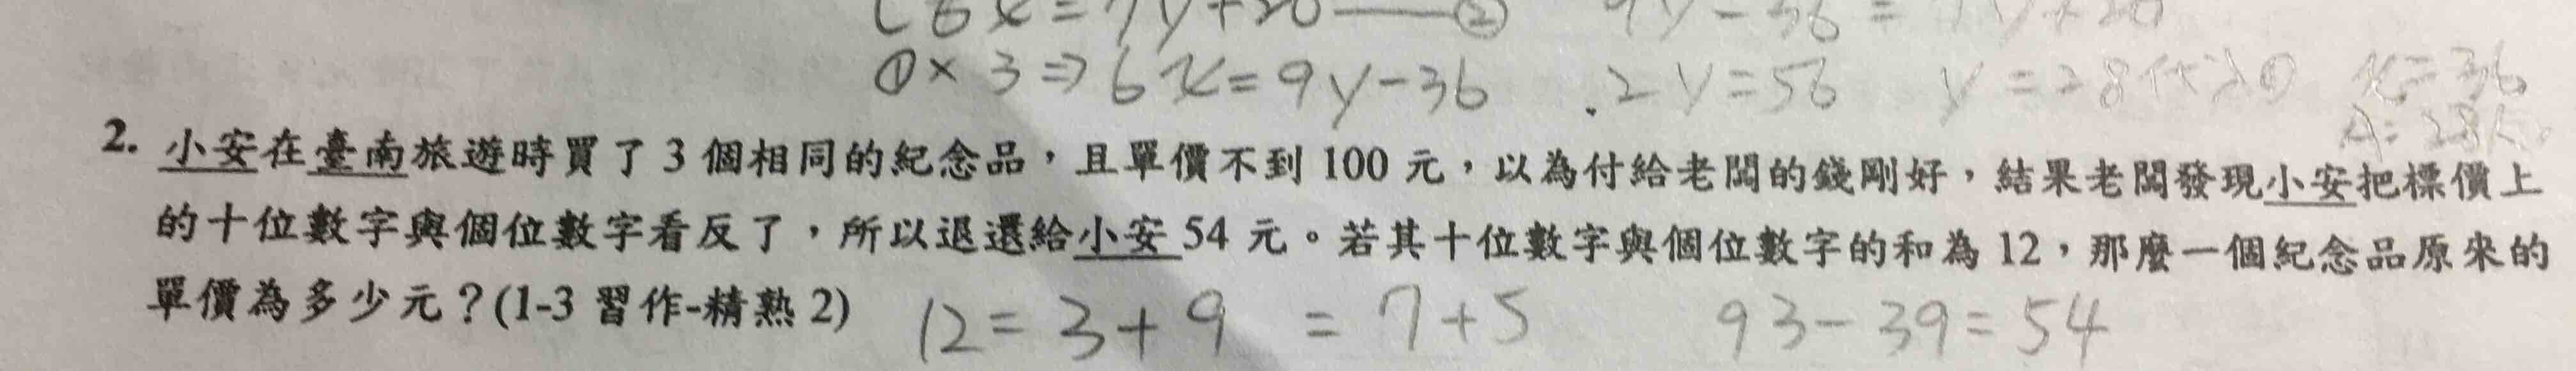 6x=7y+20——②  9y-36=7y+20
①×3⇒6x=9y-36  2y=56  y=28代入①  x=36
A=28
2. 小安在臺南旅遊時買了 3 個相同的紀念品，且單價不到 100 元，以為付給老闆的錢剛好，結果老闆發現小安把標價上
的十位數字與個位數字看反了，所以退還給小安 54 元。若其十位數字與個位數字的和為 12，那麼一個紀念品原來的
單價為多少元？(1-3 習作-精熟 2)  12=3+9  =7+5  93-39=54